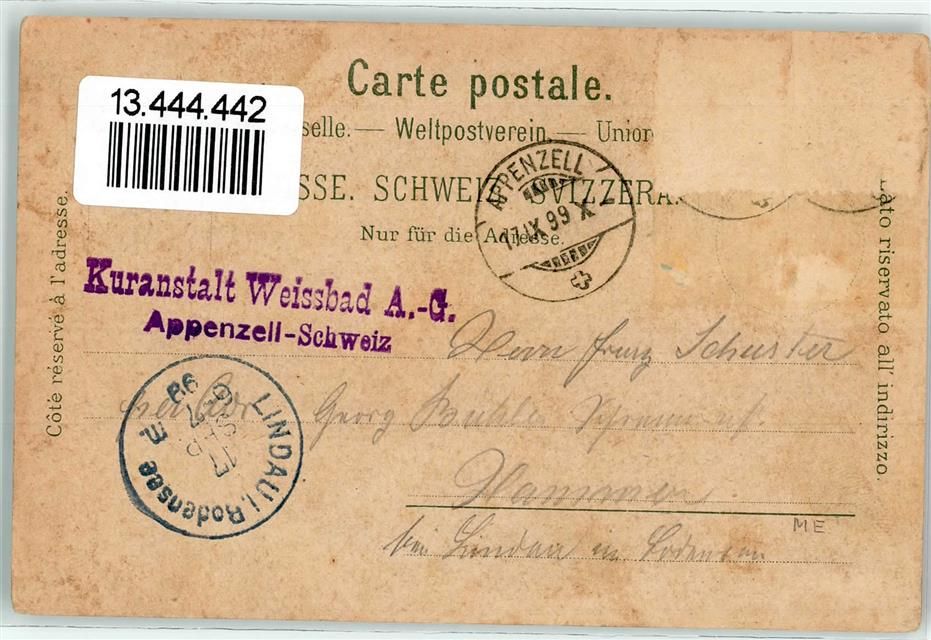 Carte postale.
13.444.442
selle. — Weltpostverein. — Union
SSE. SCHWEIZ. SVIZZERA.
Nur für die Adresse.
APPENZELL
17.IX.99.X
Côté réservé à l'adresse.
Lato riservato all' indirizzo.
Kuranstalt Weissbad A.-G.
Appenzell-Schweiz
Herrn Franz Schuster
Georg
LINDAU i. Bodensee
17
SEP
99
bei Lindau im Bodensee
ME